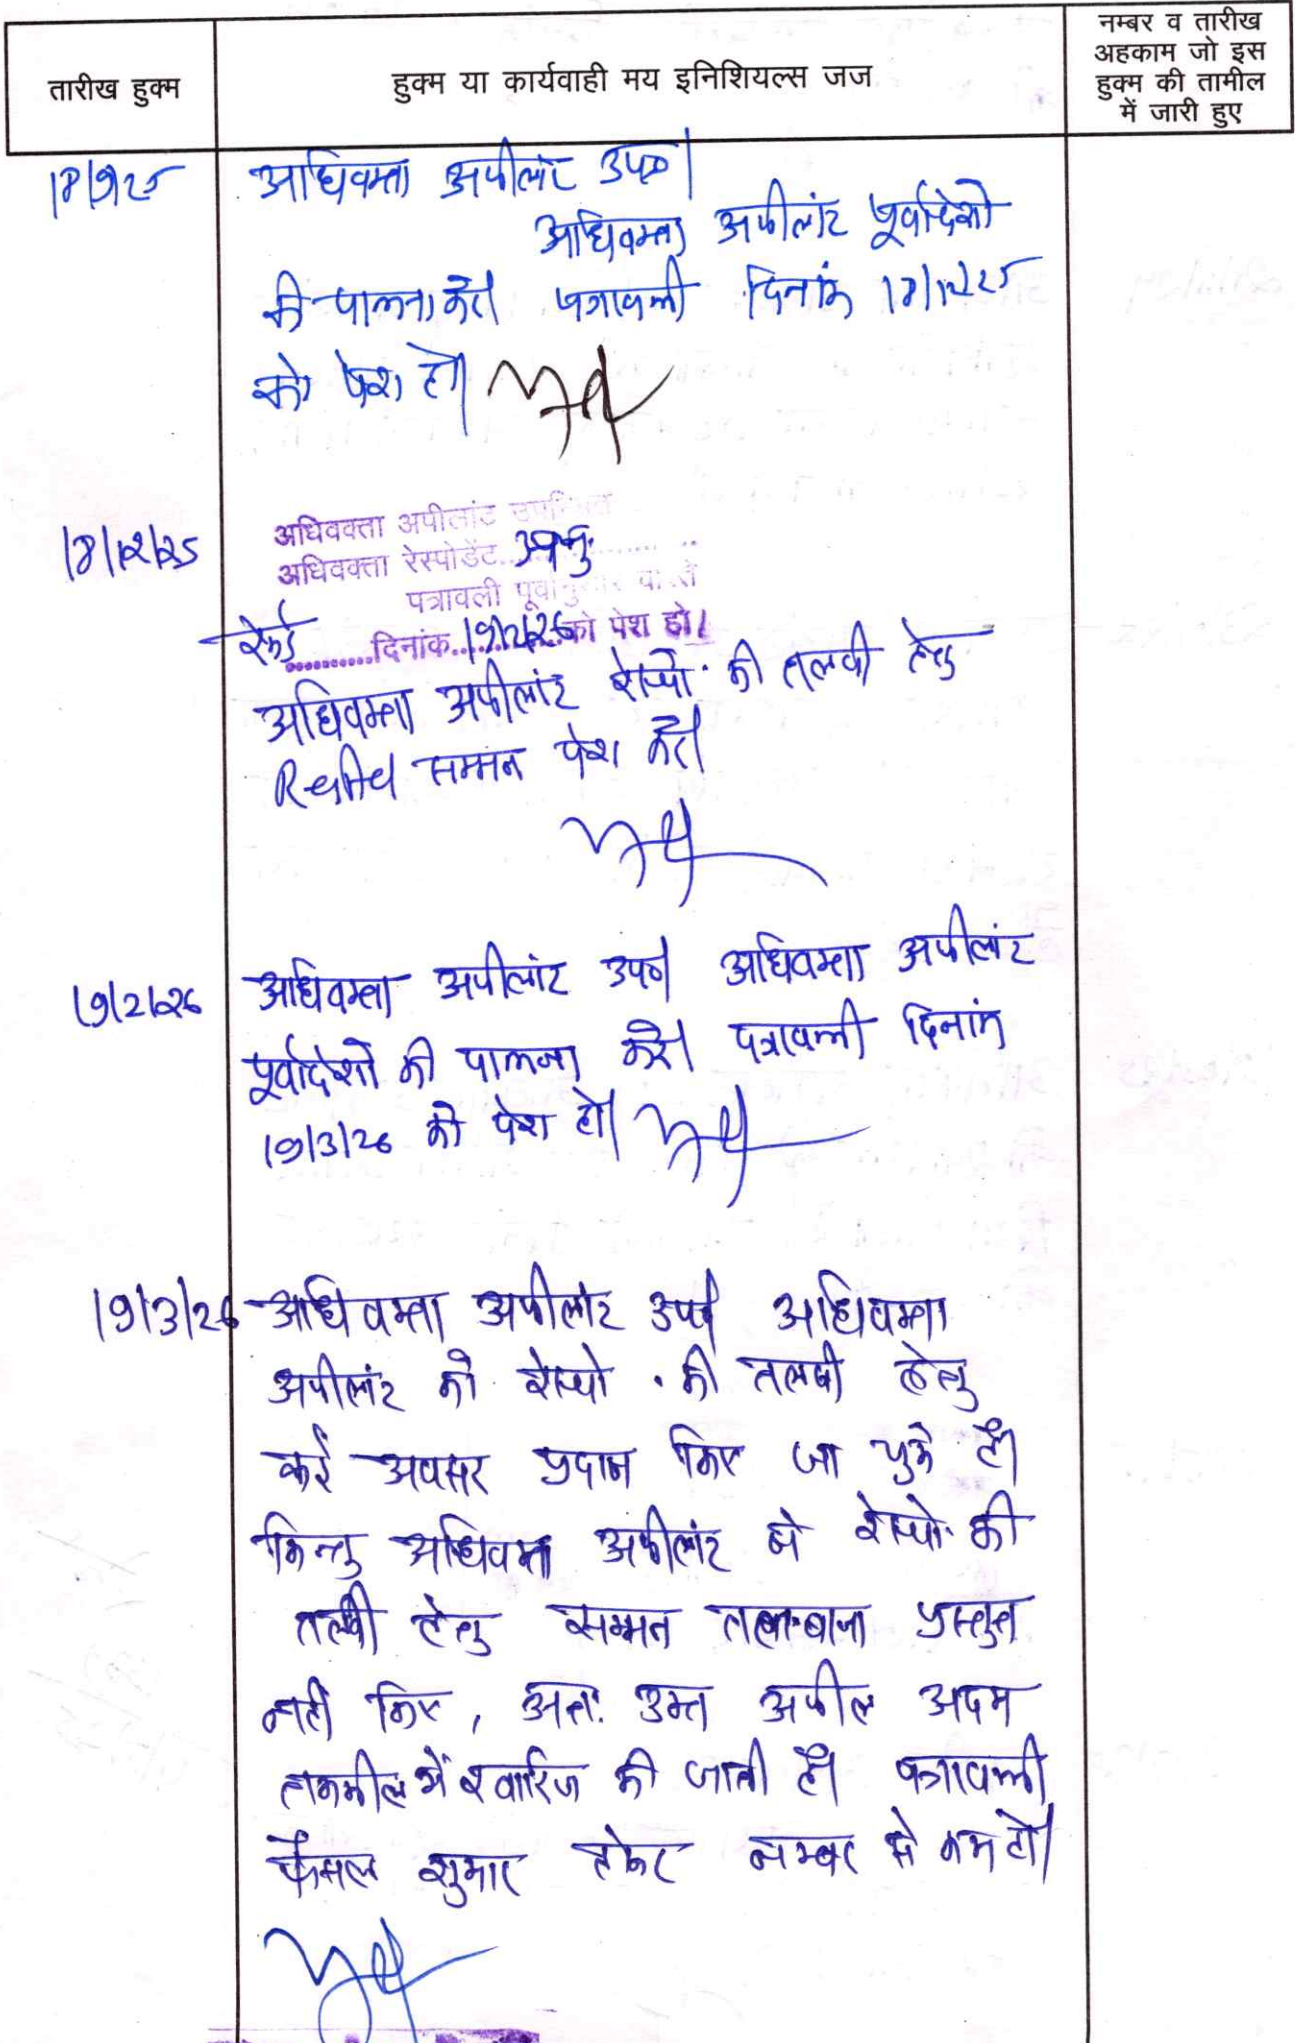 तारीख हुक्म
हुक्म या कार्यवाही मय इनिशियल्स जज
नम्बर व तारीख
अहकाम जो इस
हुक्म की तामील
में जारी हुए
18/9/25
अधिवक्ता अपीलांट उप०।
अधिवक्ता अपीलांट पूर्वादेशो
की पालना करे। पत्रावली दिनांक 18/12/25
को पेश हो।
18/12/25
अधिवक्ता अपीलांट उपस्थित
अधिवक्ता रेस्पोडेंट अनु.
पत्रावली पूर्वानुसार वास्ते
रेकर्ड दिनांक 19/2/26 को पेश हो।
अधिवक्ता अपीलांट रेस्पो. की तलबी हेतु
सम्मन पेश करे।
19/2/26
अधिवक्ता अपीलांट उप०। अधिवक्ता अपीलांट
पूर्वादेशो की पालना करे। पत्रावली दिनांक
19/3/26 को पेश हो।
19/3/26
अधिवक्ता अपीलांट उप०। अधिवक्ता
अपीलांट को रेस्पो. की तलबी हेतु
कई अवसर प्रदान किए जा चुके है।
किन्तु अधिवक्ता अपीलांट ने रेस्पो. की
तलबी हेतु सम्मन तलबाना प्रस्तुत
नही किए, अत: उक्त अपील अदम
तकमील में खारिज की जाती है। पत्रावली
फैसल शुमार होकर नम्बर से कम हो।